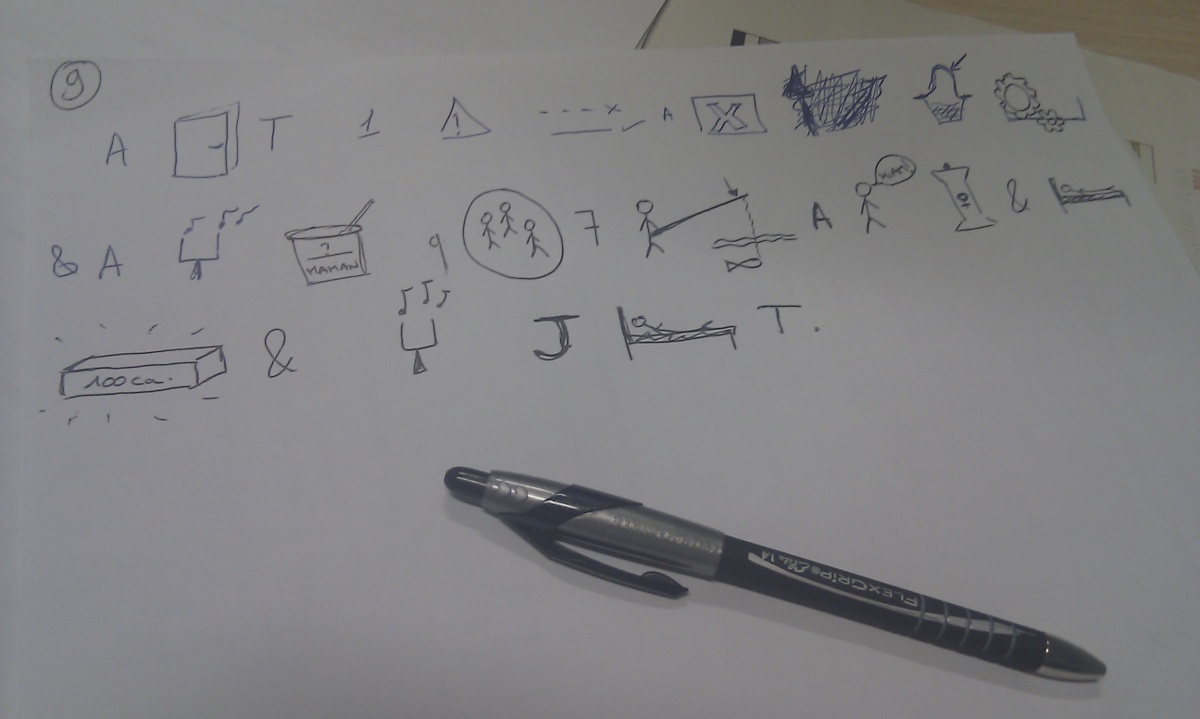 9
A T 1 ! A X
& A ? MAMAN 9 7 A &
100 ca. & J T.
FLEXGRIP Elite 1.4